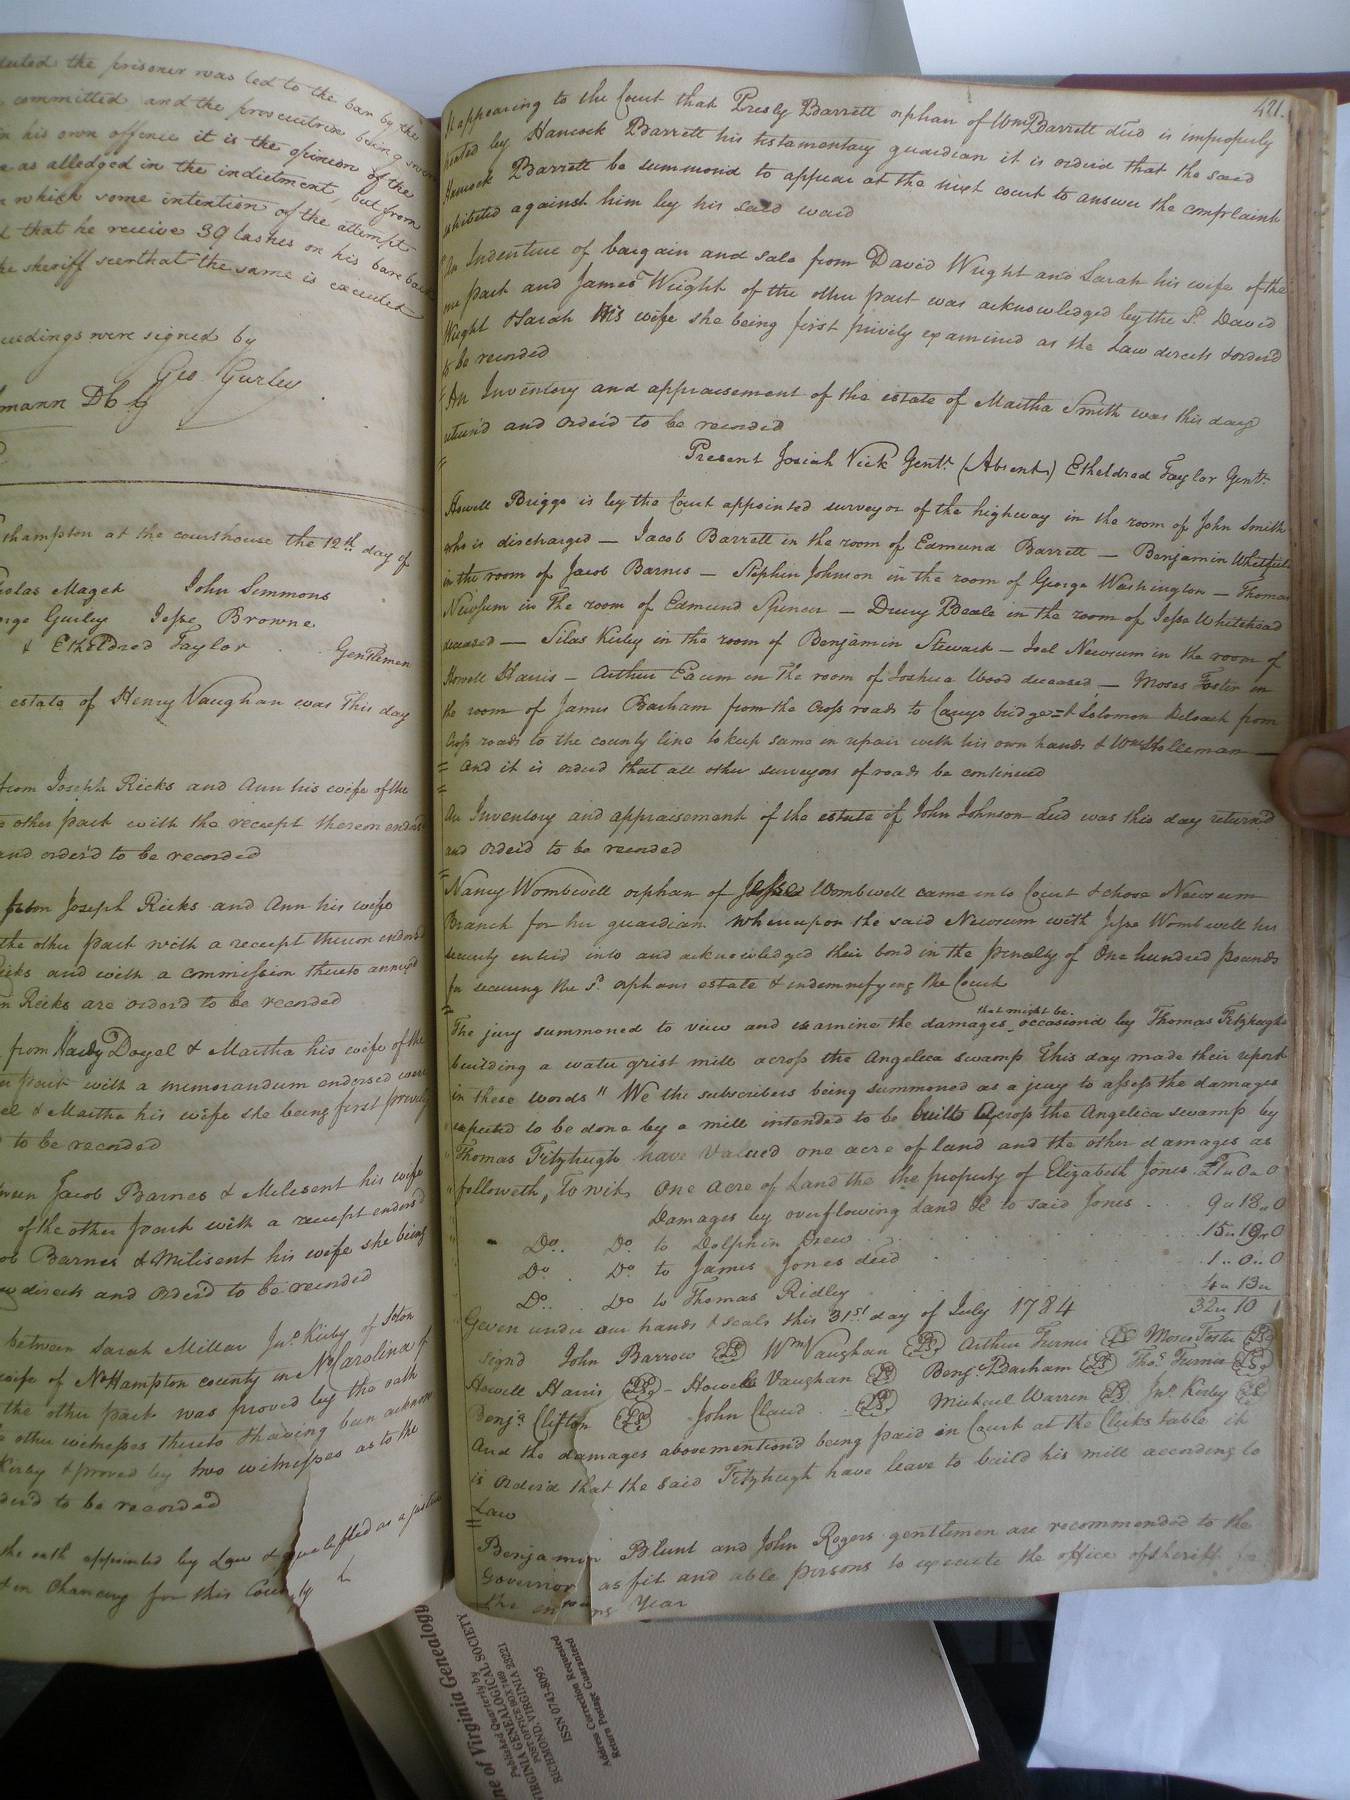 the prisoner was led to the bar by the
committed and the prosecutrix being sworn
in his own offence it is the opinion of the
as alledged in the indictment, but from
which some intention of the attempt
that he receive 39 lashes on his bare back
sheriff see that the same is executed
were signed by
Geo Gurley
at the courthouse the 12th day of
Magett John Simmons
Gurley Jesse Browne
& Etheldred Taylor Gentlemen
estate of Henry Vaughan was this day
from Joseph Ricks and Ann his wife of the
other part with the receipt thereon endors'd
and order'd to be recorded
from Joseph Ricks and Ann his wife
the other part with a receipt thereon endors'd
Ricks and with a commission thereto annex'd
Ricks are order'd to be recorded
from Hardy Doyel & Martha his wife of the
part with a memorandum endorsed were
& Martha his wife she being first privily
to be recorded
Jacob Barnes & Milesent his wife
of the other part with a receipt endors'd
Barnes & Milisent his wife she being
directs and order'd to be recorded
between Sarah Millar Jno. Kirby of
wife of NoHampton county in No Carolina of
the other part was proved by the oath
other witnesses thereto & having been
Kirby & proved by two witnesses as to the
to be recorded
the oath appointed by Law & as a justice
in Chancery for this County
421.
It appearing to the Court that Presly Barrett orphan of Wm Barrett decd is improperly
treated by Hancock Barrett his testamentary guardian it is orderd that the said
Hancock Barrett be summond to appear at the next court to answer the complaint
exhibited against him by his said ward
An Indenture of bargain and sale from David Wright and Sarah his wife of the
one part and James Wright of the other part was acknowledged by the sd. David
Wright & Sarah his wife she being first privily examined as the Law directs & orderd
to be recorded
An Inventory and appraisement of the estate of Martha Smith was this day
return'd and order'd to be recorded
Present Josiah Vick Gentn. (Absent) Etheldred Taylor Gentn.
Howell Briggs is by the Court appointed surveyor of the highway in the room of John Smith
who is discharged — Jacob Barrett in the room of Edmund Barrett — Benjamin Whitfield
in the room of Jacob Barnes — Stephen Johnson in the room of George Washington — Thomas
Newsum in the room of Edmund Spencer — Drury Beale in the room of Jesse Whitehead
deceased — Silas Kirby in the room of Benjamin Stewart — Joel Newsum in the room of
Howell Harris — Arthur Exum in the room of Joshua Wood deceased — Moses Foster in
the room of James Barham from the Cross roads to Carys bridge & Solomon Deloach from
Cross roads to the county line to keep same in repair with his own hands & Wm Holleman
and it is orderd that all other surveyors of roads be continued
An Inventory and appraisement of the estate of John Johnson decd was this day returned
and order'd to be recorded
Nancy Wombwell orphan of Jesse Wombwell came into Court & chose Newsum
Branch for her guardian whereupon the said Newsum with Jesse Wombwell his
security enterd into and acknowledged their bond in the penalty of One hundred pounds
for securing the sd. orphans estate & indemnifying the Court
The jury summoned to view and examine the damages that might be occasiond by Thomas Fitzhughs
building a water grist mill across the Angelica swamp this day made their report
in these words " We the subscribers being summoned as a jury to assess the damages
expected to be done by a mill intended to be built Across the Angelica swamp by
Thomas Fitzhugh have valued one acre of land and the other damages as
followeth, To wit, One Acre of Land the the property of Elizabeth Jones £1..0..0
Damages by overflowing Land &c to said Jones . . . 9..18..0
Do. Do. to Dolphin Drew . . . 15..19..0
Do. Do. to James Jones decd . . . 1..0..0
Do. Do. to Thomas Ridley . . . 4..13..
32..10
Given under our hands & seals this 31st day of July 1784
signd John Barrow (LS) Wm Vaughan (LS) Arthur Turner (LS) Moses Foster (LS)
Howell Harris (LS) - Howell Vaughan (LS) Benja. Barham (LS) Thos. Turner (LS)
Benja Clifton (LS) John Claud (LS) Michael Warren (LS) Jno. Kirby (LS)
And the damages abovementiond being paid in Court at the Clerks table it
is Order'd that the said Fitzhugh have leave to build his mill according to
Law
Benjamin Blunt and John Rogers gentlemen are recommended to the
Governor as fit and able persons to execute the office of sheriff for
the Year
of Virginia Genealogy
Published Quarterly by
VIRGINIA GENEALOGICAL SOCIETY
POST OFFICE BOX 7469
RICHMOND, VIRGINIA 23221
ISSN 0743-8095
Address Correction Requested
Return Postage Guaranteed